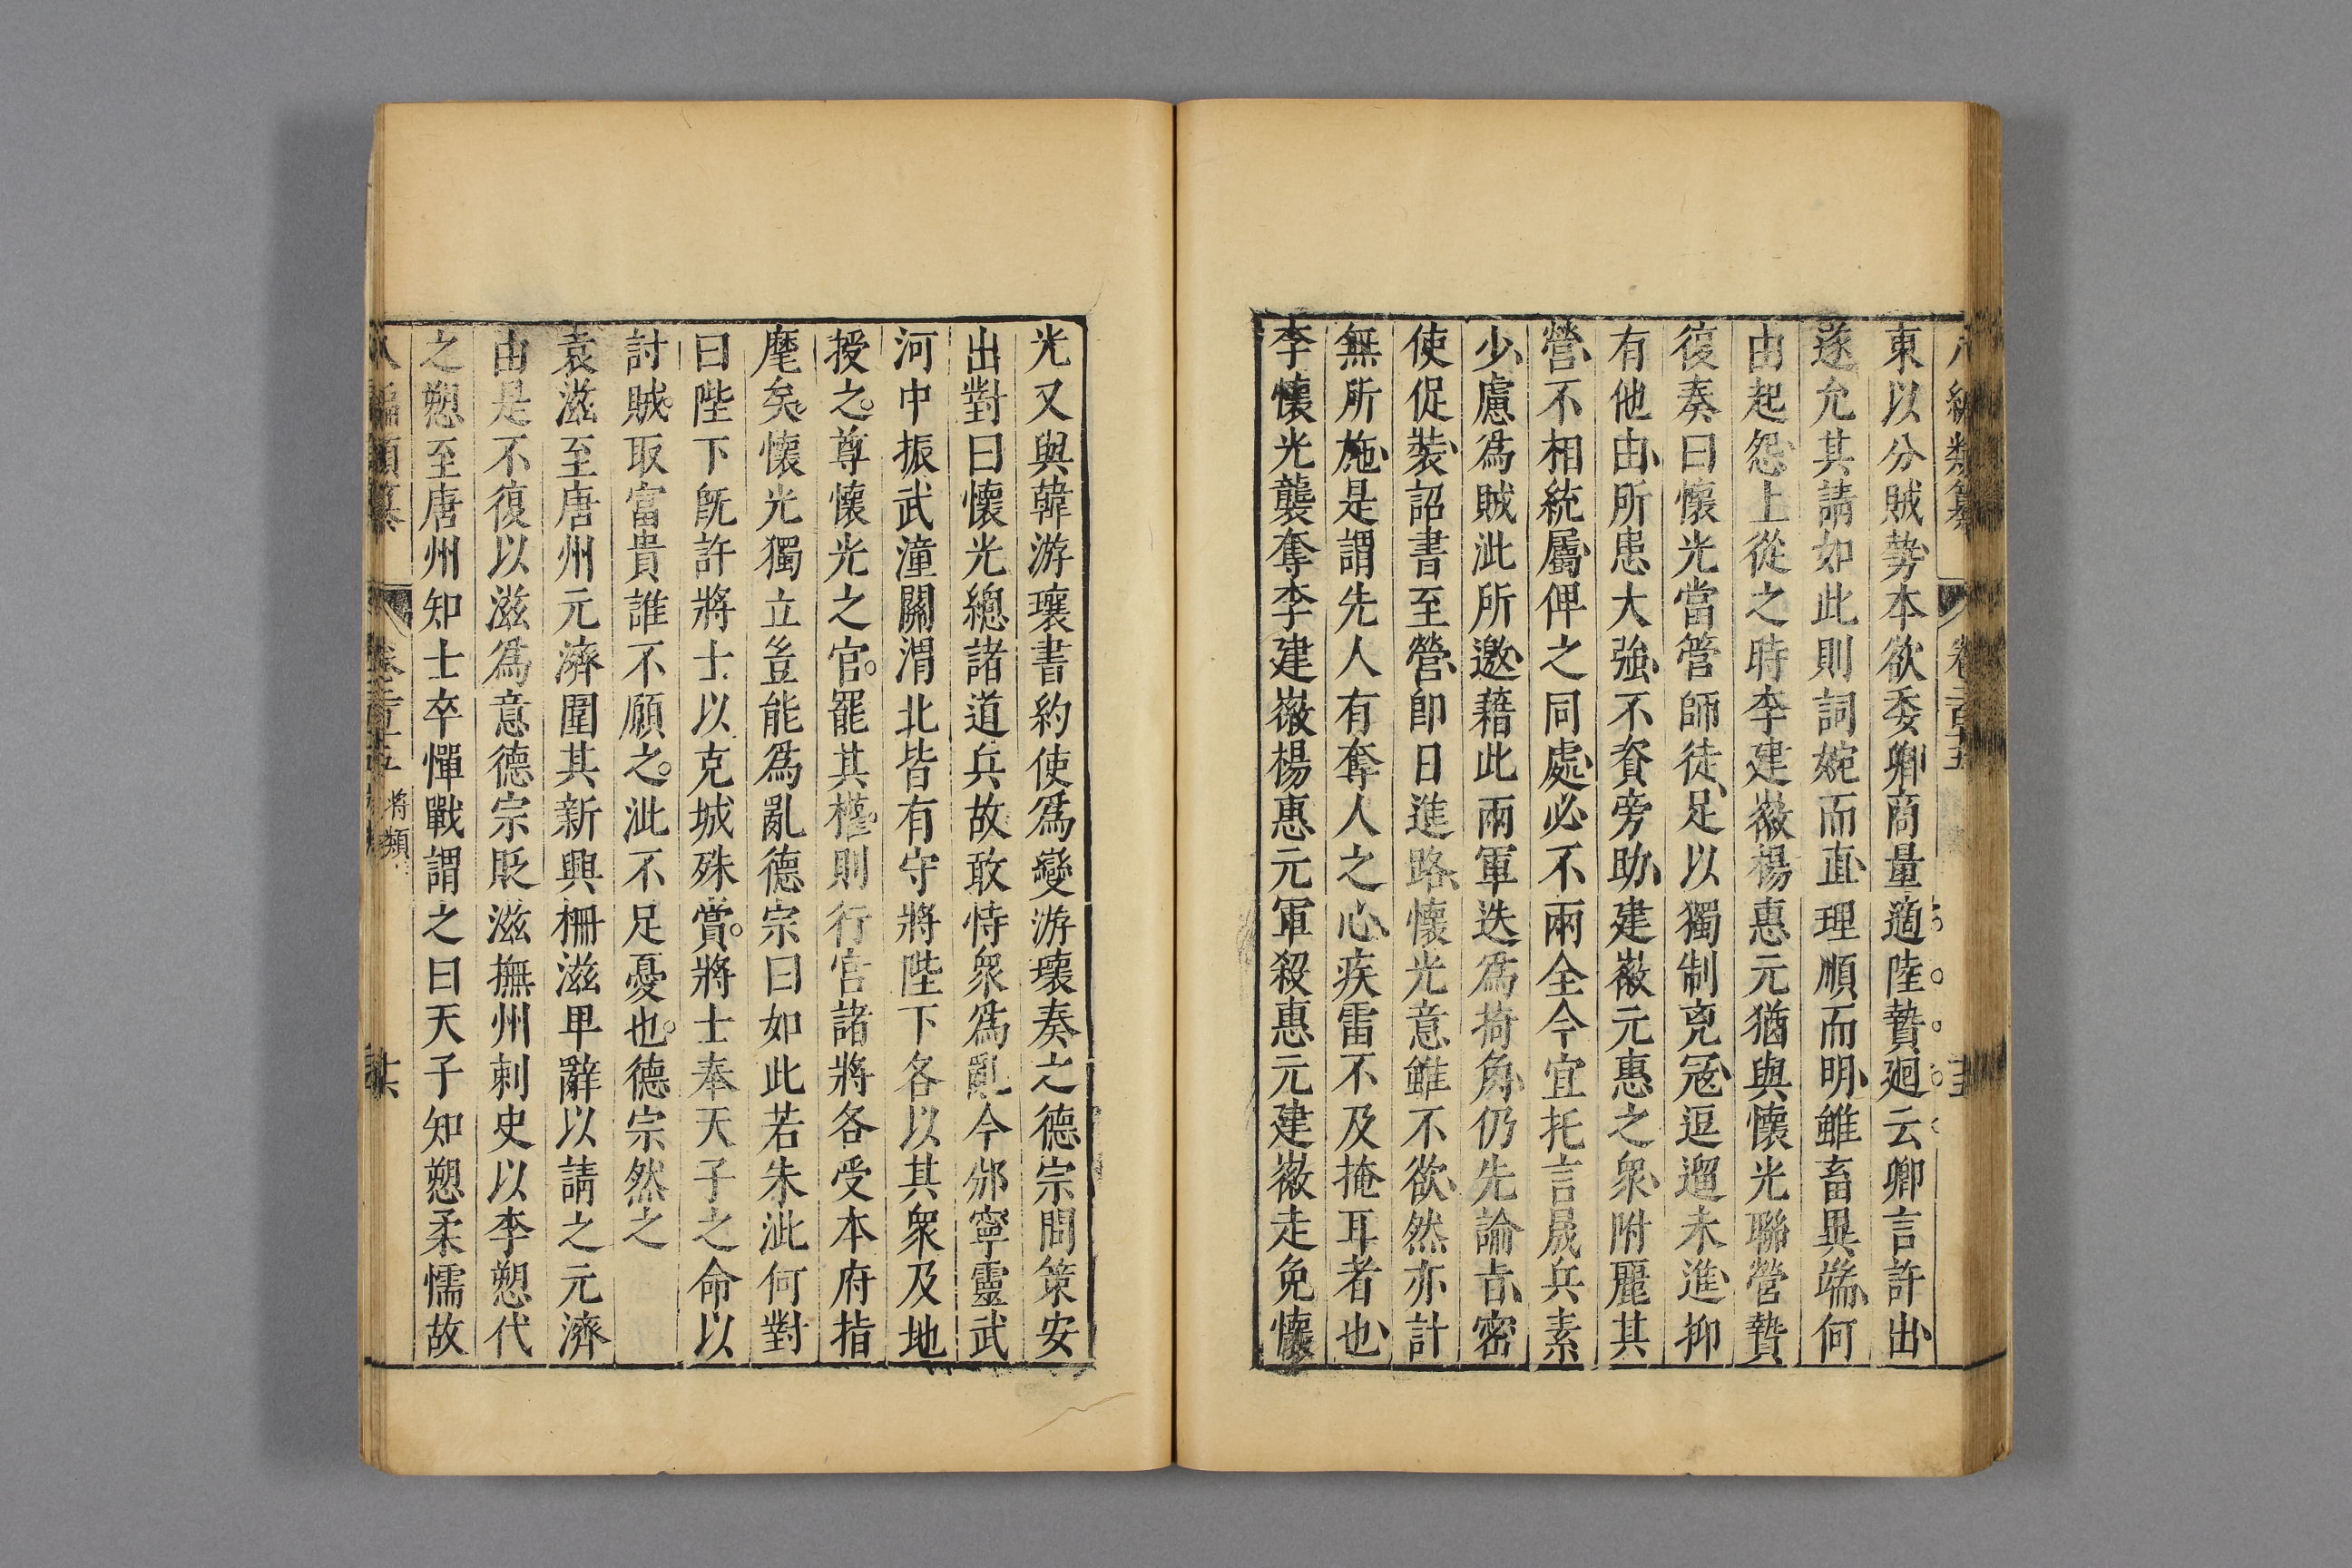 東以分賊勢本欲委卿商量適陸贄廻云卿言許出
遂允其請如此則詞婉而直理順而明雖畜異端何
由起怨上從之時李建徽楊惠元猶與懷光聯營贄
復奏曰懷光當管師徒足以獨制兇冦逗遛未進抑
有他由所患大強不資旁助建徽元惠之衆附麗其
營不相統屬俾之同處必不兩全今宜托言晟兵素
少慮爲賊泚所邀藉此兩軍迭爲掎角仍先諭㫖密
使促裝詔書至營卽日進路懷光意雖不欲然亦計
無所施是謂先人有奪人之心疾雷不及掩耳者也
李懷光襲奪李建徽楊惠元軍殺惠元建徽走免懷
光又與韓游瓌書約使爲變游瓌奏之德宗問策安
出對曰懷光總諸道兵故敢恃衆爲亂今邠寧靈武
河中振武潼關渭北皆有守將陛下各以其衆及地
授之尊懷光之官罷其權則行宫諸將各受本府指
麾矣懷光獨立豈能爲亂德宗曰如此若朱泚何對
曰陛下旣許將士以克城殊賞將士奉天子之命以
討賊取富貴誰不願之泚不足憂也德宗然之
袁滋至唐州元濟圍其新興柵滋卑辭以請之元濟
由是不復以滋爲意德宗貶滋撫州刺史以李愬代
之愬至唐州知士卒憚戰謂之曰天子知愬柔懦故
將類